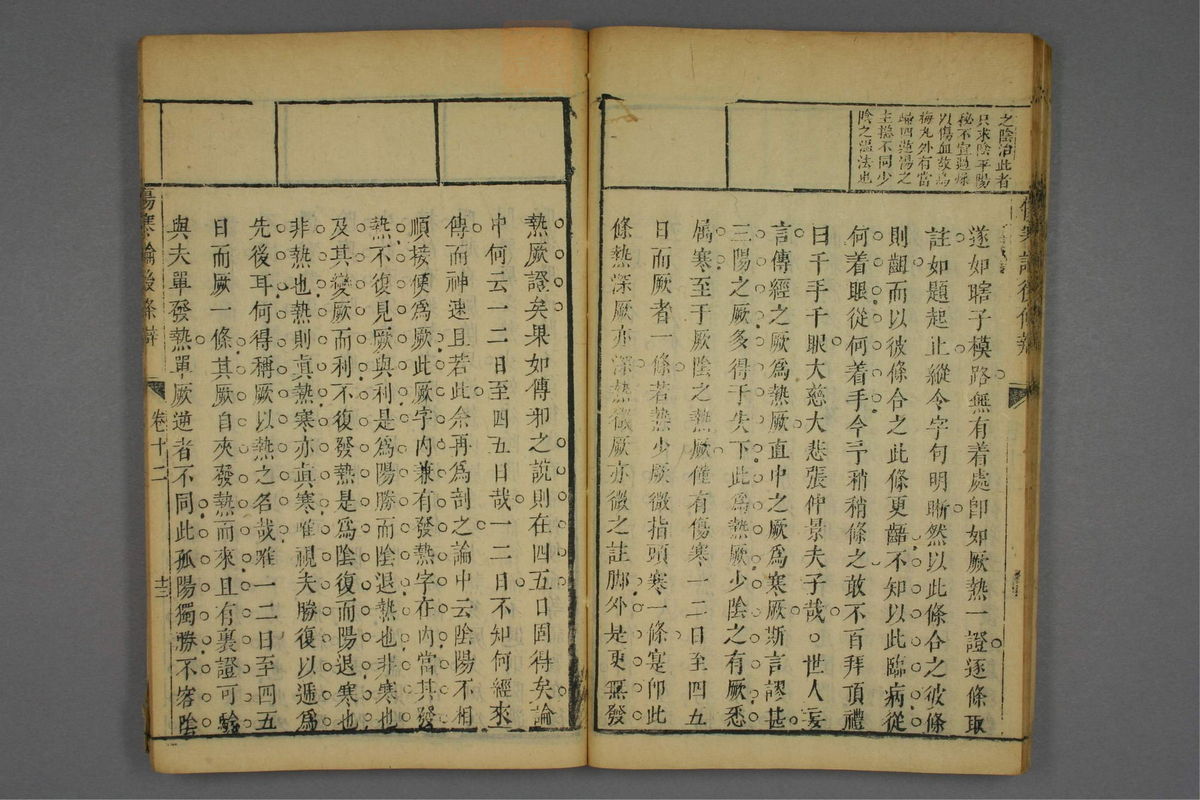 之陰治此者
只求陰平陽
秘不宜過燥
以傷血故烏
梅丸外有當
歸四逆湯之
主總不同少
陰之溫法也
遂如瞎子模路無有着處卽如厥熱一證逐條取
註如題起止縱令字句明晰然以此條合之彼條
則齟而以彼條合之此條更齬不知以此臨病從
何着眼從何着手今予稍稍條之敢不百拜頂禮
曰千手千眼大慈大悲張仲景夫子哉世人妄
言傳經之厥爲熱厥直中之厥爲寒厥斯言謬甚
三陽之厥多得于失下此爲熱厥少陰之有厥悉
属寒至于厥陰之熱厥僅有傷寒一二日至四五
日而厥者一條若熱少厥微指頭寒一條寔卽此
條熱深厥亦深熱微厥亦微之註脚外是更無發
熱厥證矣果如傳邪之說則在四五日固得矣論
中何云一二日至四五日哉一二日不知何經來
傳而神速且若此余再爲剖之論中云陰陽不相
順接便爲厥此厥字內兼有發熱字在內當其發
熱不復見厥與利是爲陽勝而陰退熱也非寒也
及其變厥而利不復發熱是爲陰復而陽退寒也
非熱也熱則眞熱寒亦眞寒唯視夫勝復以遞爲
先後耳何得稱厥以熱之名哉唯一二日至四五
日而厥一條其厥自夾發熱而來且有裏證可驗
與夫單發熱單厥逆者不同此孤陽獨勝不容陰
傷寒論後條辯
卷十二